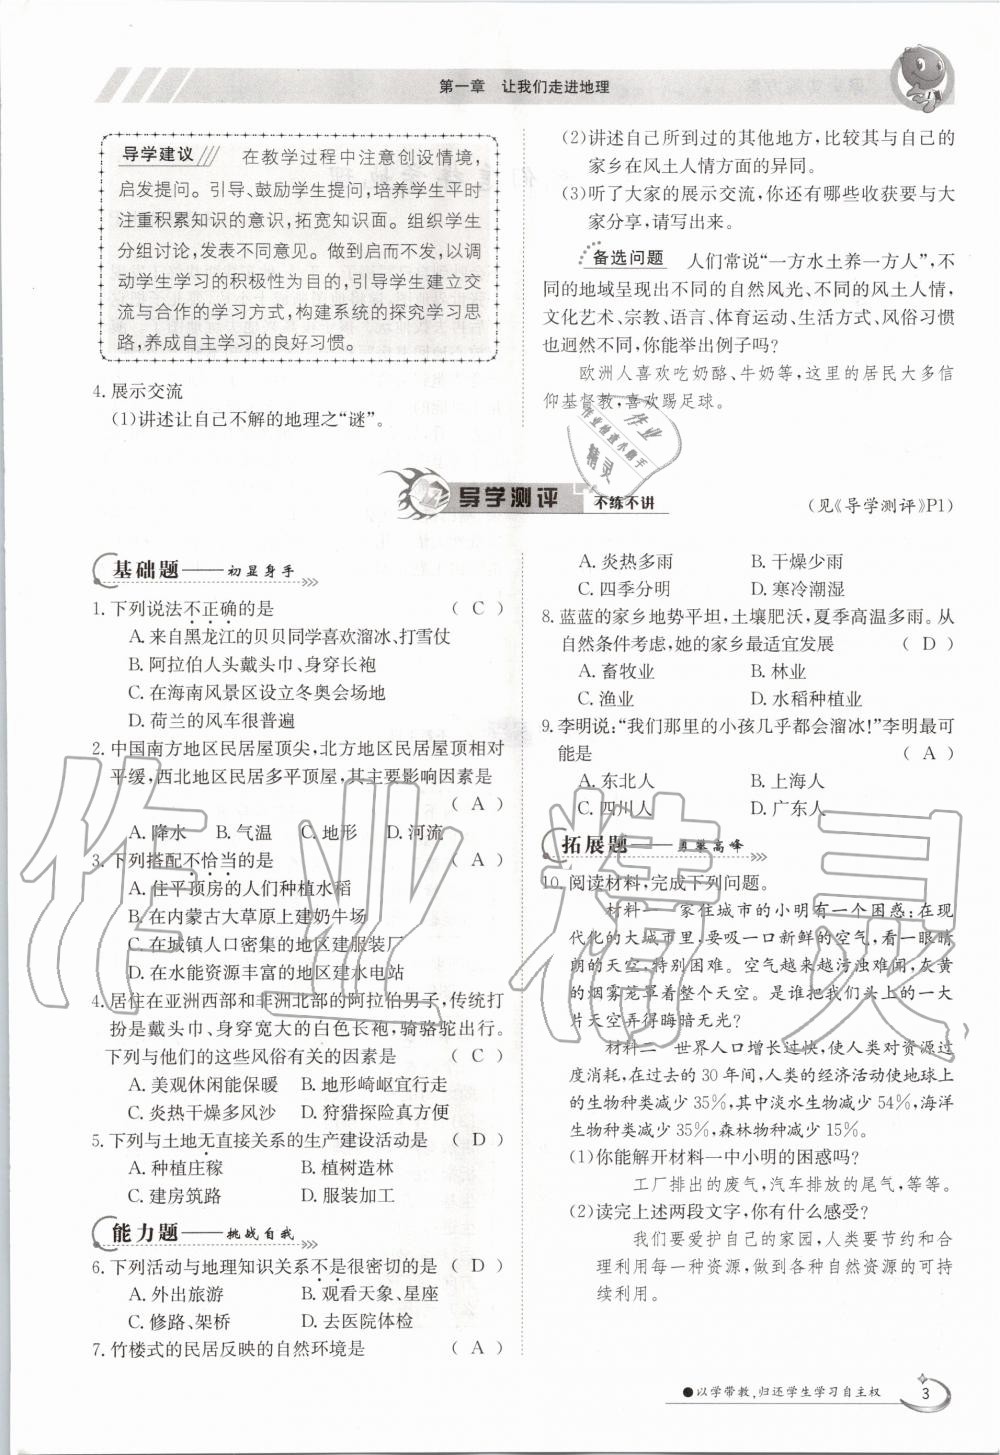 第一章 让我们走进地理
导学建议 在教学过程中注意创设情境,
启发提问。引导、鼓励学生提问,培养学生平时
注重积累知识的意识,拓宽知识面。组织学生
分组讨论,发表不同意见。做到启而不发,以调
动学生学习的积极性为目的,引导学生建立交
流与合作的学习方式,构建系统的探究学习思
路,养成自主学习的良好习惯。
4. 展示交流
(1)讲述让自己不解的地理之“谜”。
(2)讲述自己所到过的其他地方,比较其与自己的
家乡在风土人情方面的异同。
(3)听了大家的展示交流,你还有哪些收获要与大
家分享,请写出来。
备选问题 人们常说“一方水土养一方人”,不
同的地域呈现出不同的自然风光、不同的风土人情,
文化艺术、宗教、语言、体育运动、生活方式、风俗习惯
也迥然不同,你能举出例子吗?
欧洲人喜欢吃奶酪、牛奶等,这里的居民大多信
仰基督教,喜欢踢足球。
导学测评 不练不讲
(见《导学测评》P1)
基础题——初显身手
1. 下列说法不正确的是 ( C )
A. 来自黑龙江的贝贝同学喜欢溜冰、打雪仗
B. 阿拉伯人头戴头巾、身穿长袍
C. 在海南风景区设立冬奥会场地
D. 荷兰的风车很普遍
2. 中国南方地区民居屋顶尖,北方地区民居屋顶相对
平缓,西北地区民居多平顶屋,其主要影响因素是
( A )
A. 降水 B. 气温 C. 地形 D. 河流
3. 下列搭配不恰当的是 ( A )
A. 住平顶房的人们种植水稻
B. 在内蒙古大草原上建奶牛场
C. 在城镇人口密集的地区建服装厂
D. 在水能资源丰富的地区建水电站
4. 居住在亚洲西部和非洲北部的阿拉伯男子,传统打
扮是戴头巾、身穿宽大的白色长袍,骑骆驼出行。
下列与他们的这些风俗有关的因素是 ( C )
A. 美观休闲能保暖 B. 地形崎岖宜行走
C. 炎热干燥多风沙 D. 狩猎探险真方便
5. 下列与土地无直接关系的生产建设活动是 ( D )
A. 种植庄稼 B. 植树造林
C. 建房筑路 D. 服装加工
能力题——挑战自我
6. 下列活动与地理知识关系不是很密切的是 ( D )
A. 外出旅游 B. 观看天象、星座
C. 修路、架桥 D. 去医院体检
7. 竹楼式的民居反映的自然环境是 ( A )
A. 炎热多雨 B. 干燥少雨
C. 四季分明 D. 寒冷潮湿
8. 蓝蓝的家乡地势平坦,土壤肥沃,夏季高温多雨。从
自然条件考虑,她的家乡最适宜发展 ( D )
A. 畜牧业 B. 林业
C. 渔业 D. 水稻种植业
9. 李明说:“我们那里的小孩几乎都会溜冰!”李明最可
能是 ( A )
A. 东北人 B. 上海人
C. 四川人 D. 广东人
拓展题——勇攀高峰
10. 阅读材料,完成下列问题。
材料一 家住城市的小明有一个困惑:在现
代化的大城市里,要吸一口新鲜的空气,看一眼晴
朗的天空,特别困难。空气越来越污浊难闻,灰黄
的烟雾笼罩着整个天空。是谁把我们头上的一大
片天空弄得晦暗无光?
材料二 世界人口增长过快,使人类对资源过
度消耗,在过去的 30 年间,人类的经济活动使地球上
的生物种类减少 35%,其中淡水生物减少 54%,海洋
生物种类减少 35%,森林物种减少 15%。
(1)你能解开材料一中小明的困惑吗?
工厂排出的废气,汽车排放的尾气,等等。
(2)读完上述两段文字,你有什么感受?
我们要爱护自己的家园,人类要节约和合
理利用每一种资源,做到各种自然资源的可持
续利用。
作业精灵
作业
作业检查小助手
精灵
●以学带教,归还学生学习自主权 3